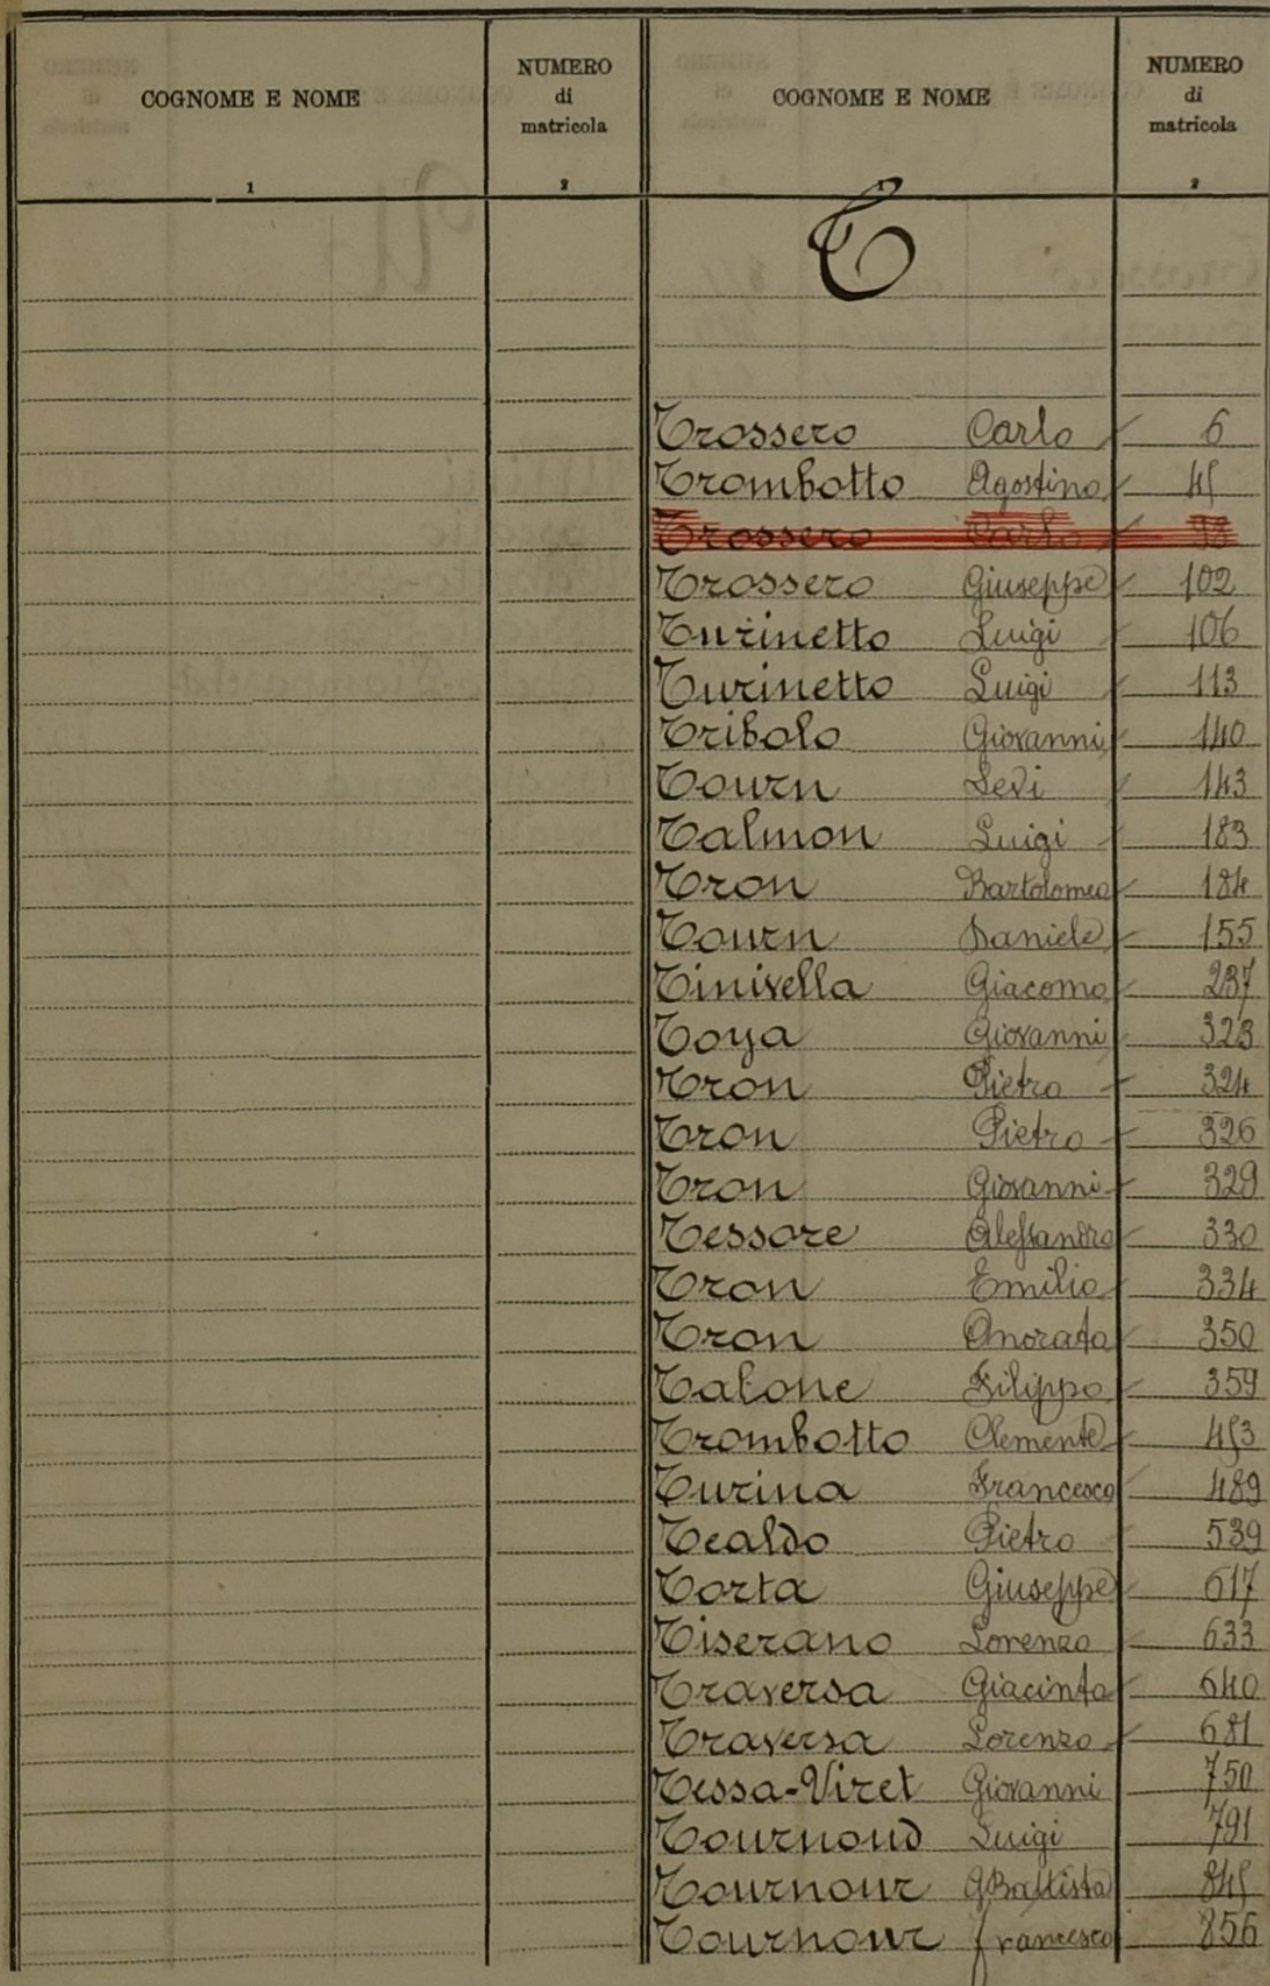 COGNOME E NOME
NUMERO
di
matricola
COGNOME E NOME
NUMERO
di
matricola
1
2
1
2
T
Trossero Carlo 6
Trombotto Agostino 45
Trossero Carlo 98
Trossero Giuseppe 102
Turinetto Luigi 106
Turinetto Luigi 113
Tribolo Giovanni 140
Tourn Levi 143
Talmon Luigi 183
Tron Bartolomeo 184
Tourn Daniele 155
Tinivella Giacomo 237
Toya Giovanni 323
Tron Pietro 324
Tron Pietro 326
Tron Giovanni 329
Tessore Alessandro 330
Tron Emilio 334
Tron Onorato 350
Talone Filippo 359
Trombotto Clemente 453
Turina Francesco 489
Tealdo Pietro 539
Torta Giuseppe 617
Tiserano Lorenzo 633
Traversa Giacinto 640
Traversa Lorenzo 681
Tessa-Viret Giovanni 750
Tournoud Luigi 791
Tournour G Battista 845
Tournour francesco 856